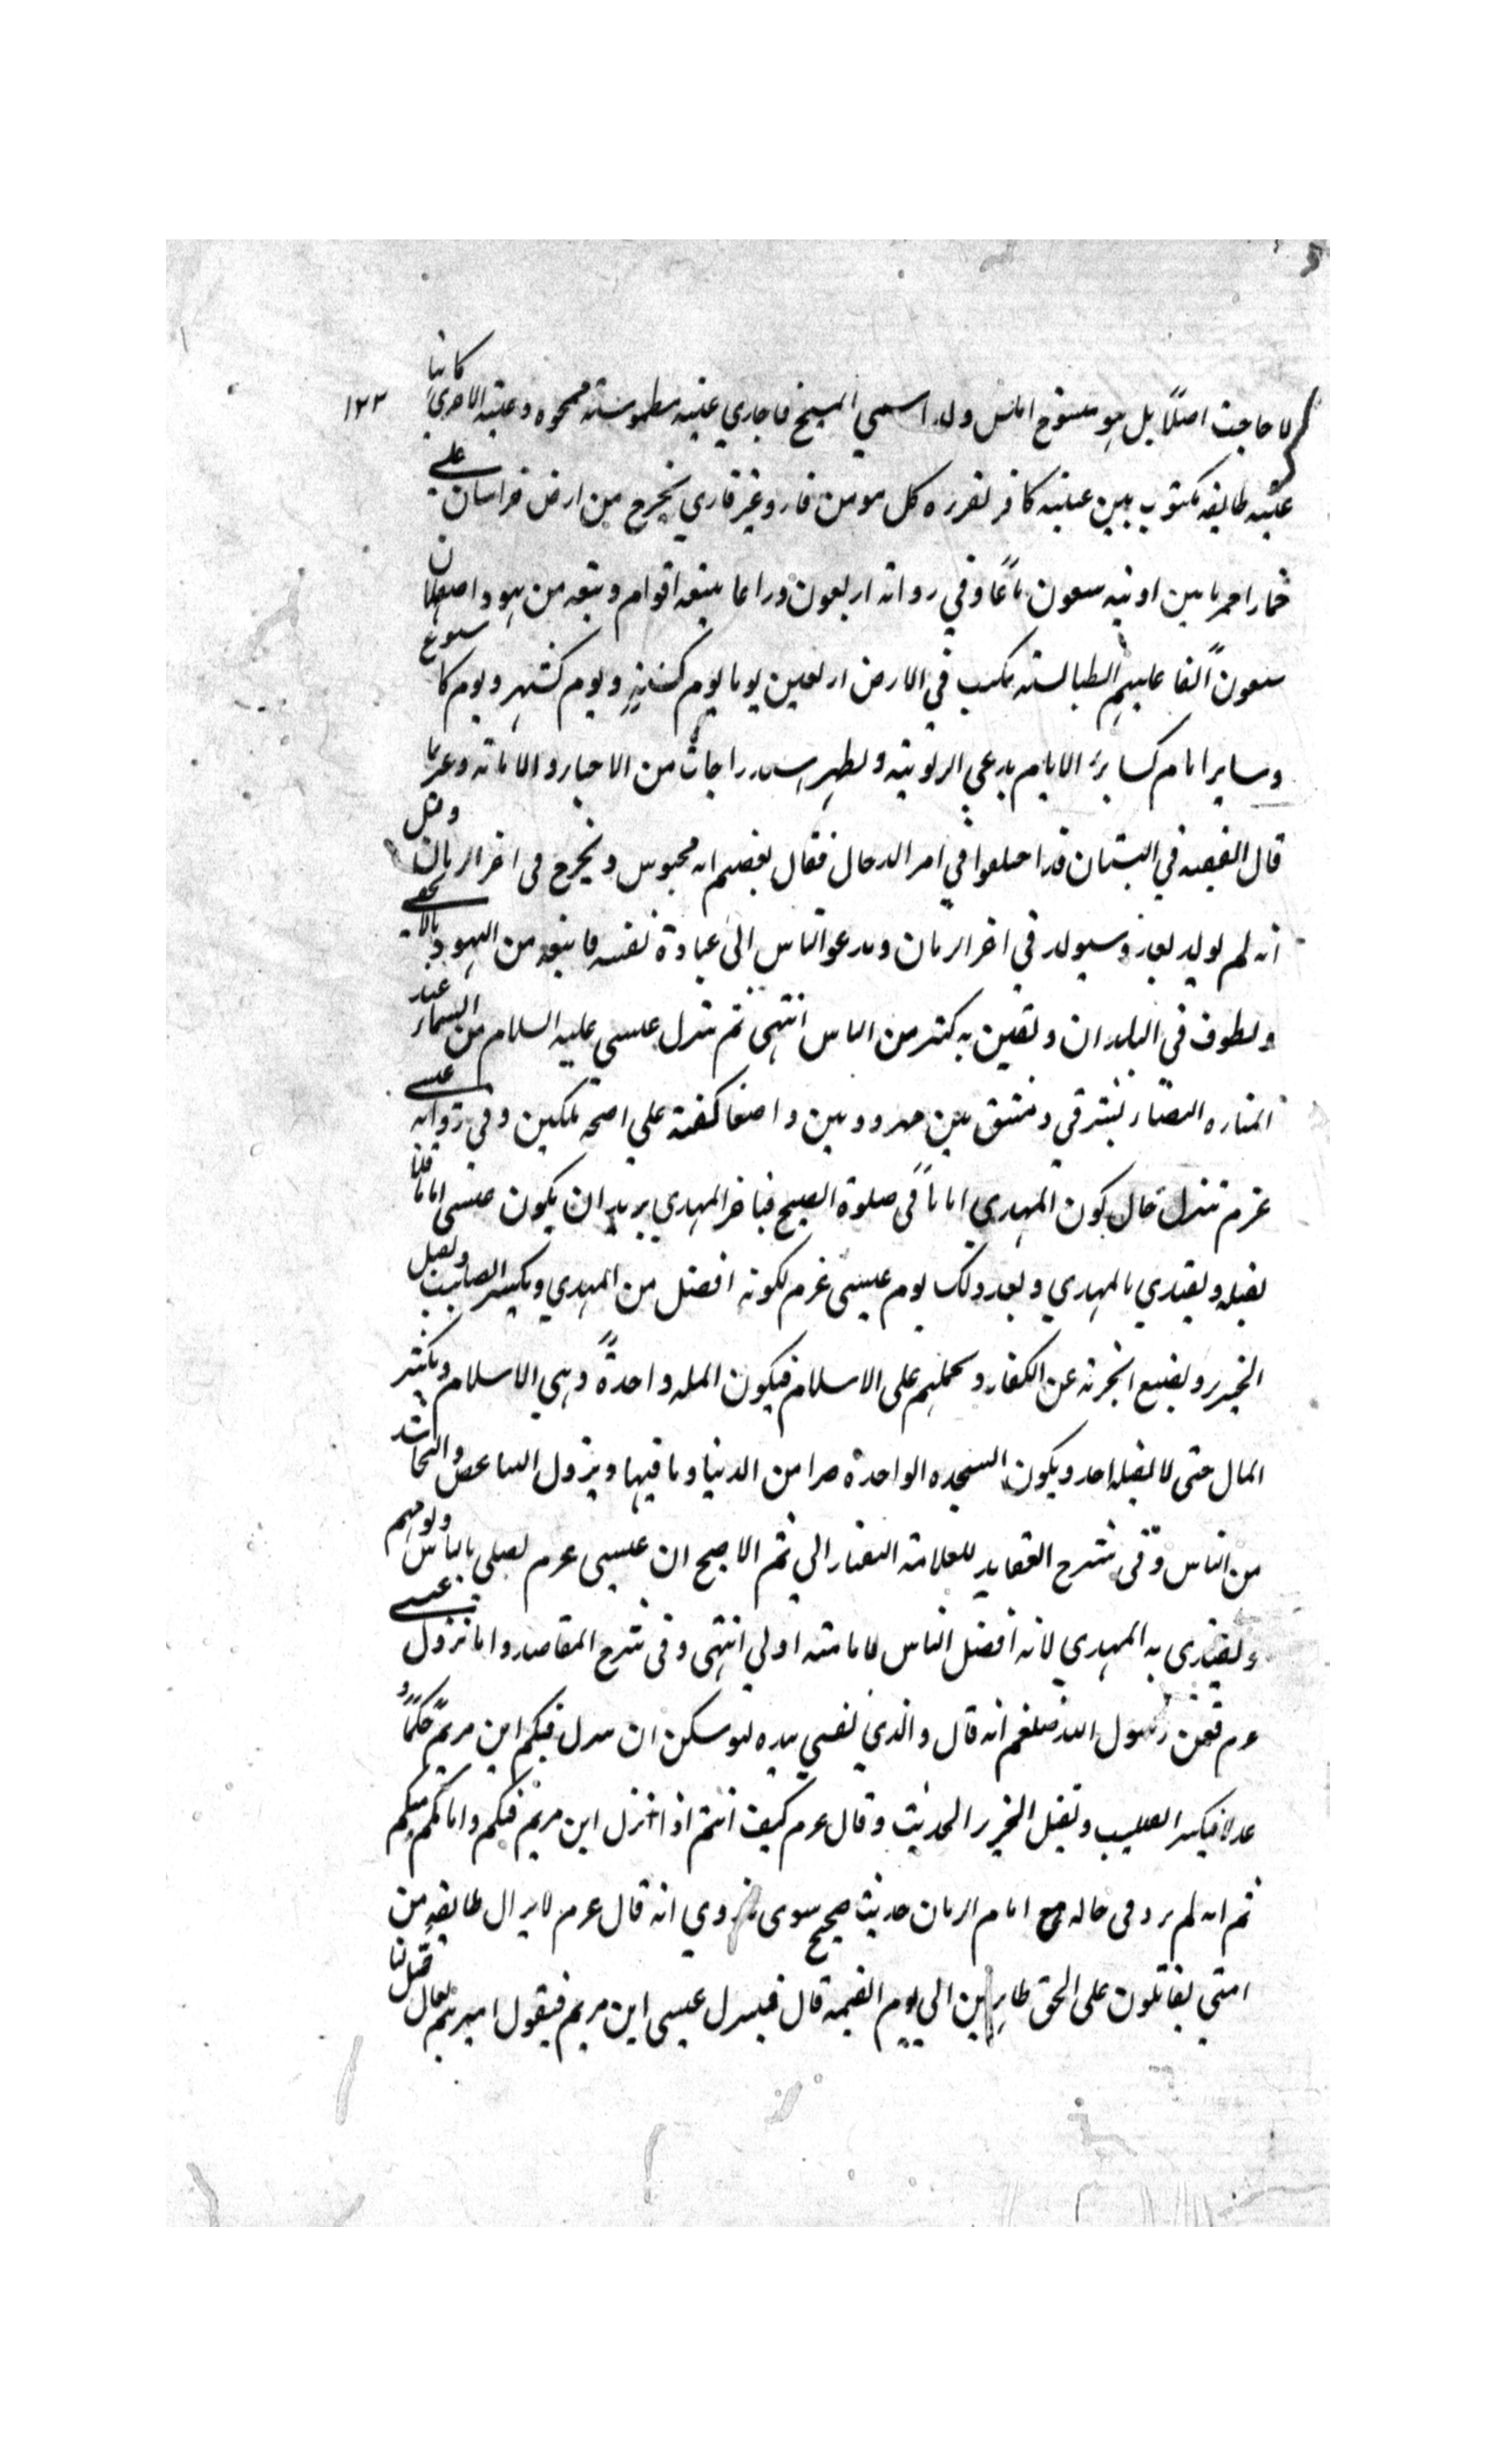 ١٢٢
لا حاجب اصلًا بل هو ممسوح املس ولذا سمي المسيح فاحدي عينيه مطموسة ممحوه وعينه الاخري كانها
عنبه طافيه مكتوب بين عينيه كافر يقرءه كل مومن قار وغير قاري يخرج من ارض خراسان علي
حمار احمر ما بين اذنيه سبعون باعًا وفي رواية اربعون ذراعا يتبعه اقوام ويتبعه من يهود اصفهان
سبعون الفًا عليهم الطيالسة يمكث في الارض اربعين يوما يوم كسنةٍ ويوم كشهر ويوم كاسبوع
وساير ايام كساير الايام يدعي الربوبية ويظهر استدراجات من الاحيا والاماتة وغيرهما
قال الفقيه في البستان قد اختلفوا في امر الدجال فقال بعضهم انه محبوس ويخرج في اخر الزمان وقيل
انه لم يولد بعد وسيولد في اخر الزمان ويدعو الناس الى عبادة نفسه فايتبعه من اليهود ما لا يحصى
ويطوف في البلدان ويفتن به كثير من الناس انتهى ثم ينزل عيسى عليه السلام من السماء عند
المناره البيضاء بشرقي دمشق بين مهرودتين واضعا كفيه علي اجنحه ملكين وفي رواية عيسى
عزم تنزل حال كون المهدي امامًا في صلوة الصبح فياخر المهدي يريد ان يكون عيسى اماما فلا
يقبله ويقتدي بالمهدي وبعد ذلك يوم عيسى عزم لكونه افضل من المهدي ويكسر الصليب ويقتل
الخنزير ويضع الجزية عن الكفار ويحملهم على الاسلام فيكون المله واحدةً وهي الاسلام ويكثر
المال حتى لا يقبله احد ويكون السجده الواحدة خيرا من الدنيا وما فيها ويزول التباغض والتحاسد
من الناس وفي شرح العقايد للعلامة التفتازاني ثم الاصح ان عيسى عزم يصلي بالناس ويومهم
ويقتدى به المهدي لانه افضل الناس لامامته اولي انتهى وفي شرح المقاصد واما نزول عيسى
عزم فعن رسول الله صلعم انه قال والذي نفسي بيده ليوسكن ان ينزل فيكم ابن مريم حكمًا و
عدلا فيكسر الصليب ويقتل الخنزير الحديث وقال عزم كيف انتم اذا نزل ابن مريم فيكم وامامكم منكم
ثم انه لم يرد في حاله مع امام الزمان حديث صحيح سوى ما روي انه قال عزم لا يزال طايفةٍ من
امتي يقاتلون على الحق ظاهرين الي يوم القيمه قال فينزل عيسى ابن مريم فيقول اميرهم تعال صل لنا